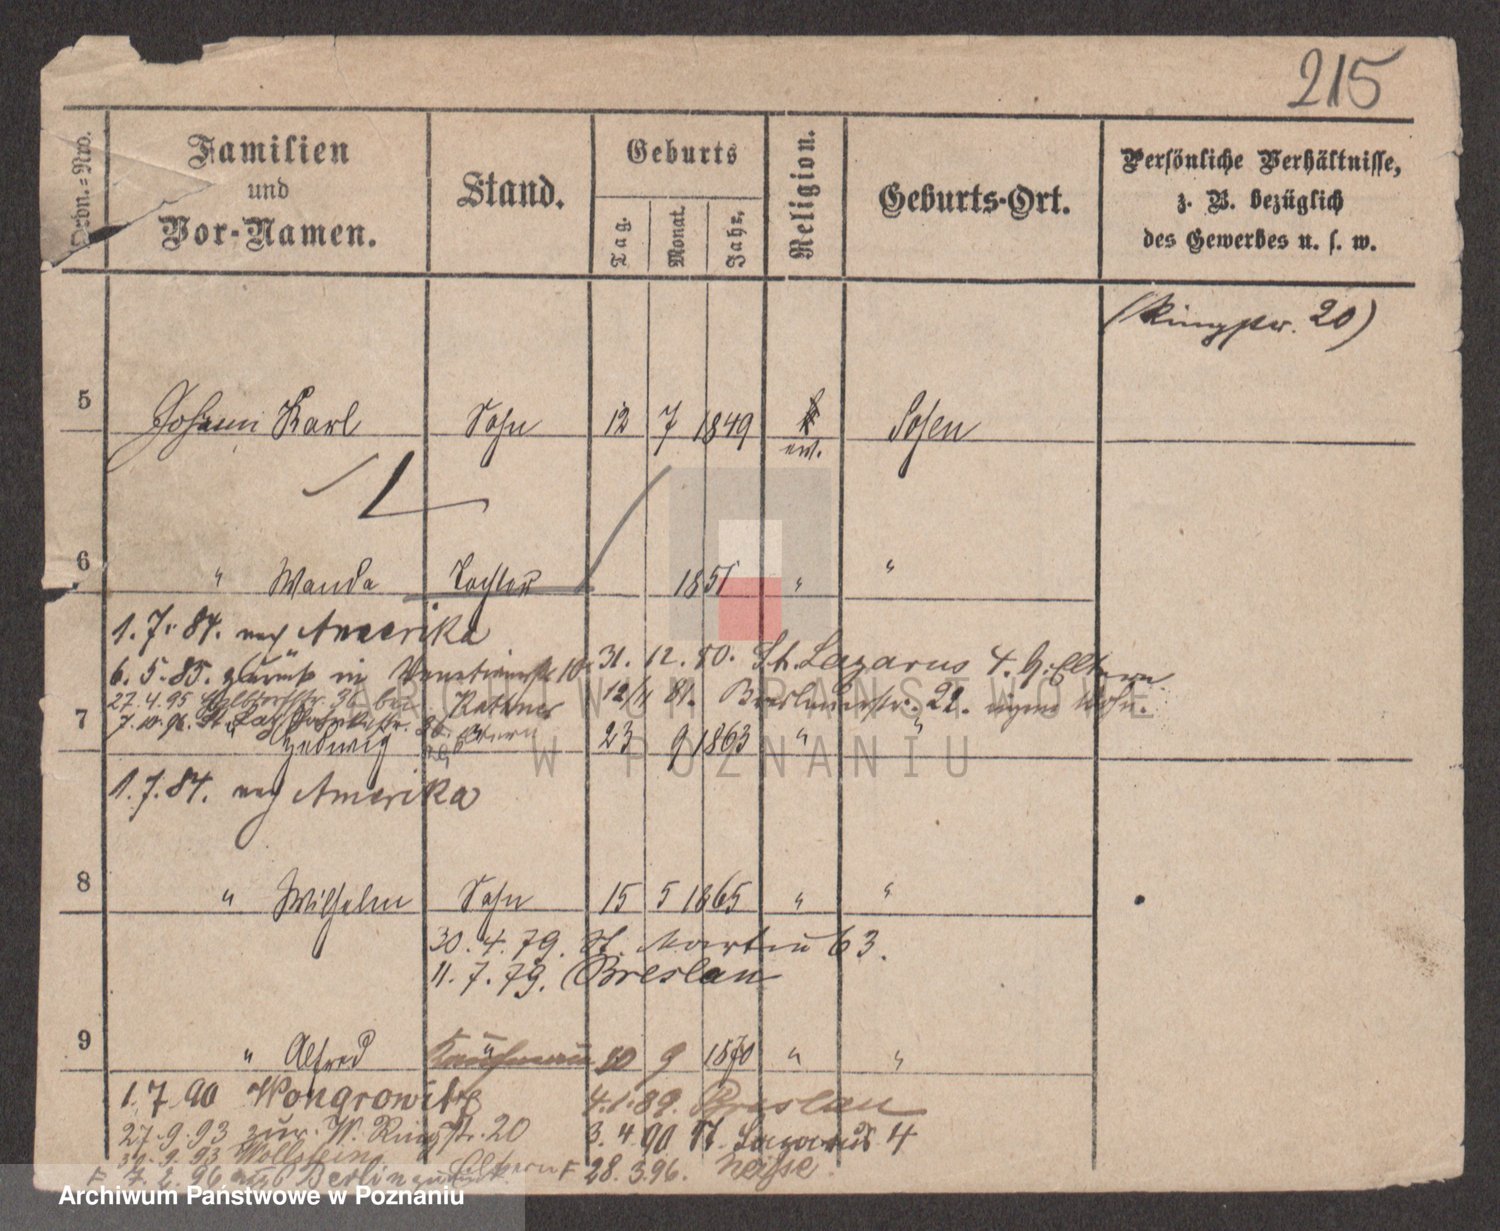 215
Ordn.=Nro.
Familien
und
Vor-Namen.
Stand.
Geburts
Tag.
Monat.
Jahr.
Religion.
Geburts-Ort.
Persönliche Verhältnisse,
z. B. bezüglich
des Gewerbes u. s. w.
(Ringstr. 20)
5 Johann Karl Sohn 12 7 1849 Posen
ev.
6 " Wanda Tochter 1851 " "
1.7.84. nach Amerika
6.5.85. zurück in 31.12.80. St. Lazarus 4. b. Eltern
27.4.95 12/11 81. Breslauerstr. 22. eigne Wohn.
7.10.96. St. Laz.
7 Hedwig 23 9 1863 " "
1.7.84. nach Amerika
8 " Wilhelm Sohn 15 5 1865 " "
30.4.79. St. Martin 63.
11.7.79. Breslau
9 " Alfred Kaufmann 10 9 1870 " "
1.7.90 Wongrowitz 4.1.89. Breslau
27.9.93 zur. W. Ringstr. 20 3.4.90 St. Lazarus 4
9.93 Wollstein
F 7.2.96 aus Berlin zurück Eltern F 28.3.96. Neisse
ARCHIWUM PAŃSTWOWE
W POZNANIU
Archiwum Państwowe w Poznaniu